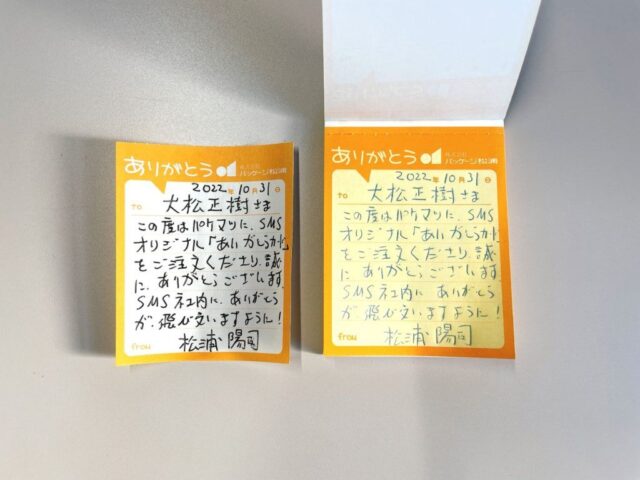 ありがとう
株式会社
パッケージ松浦
2022年10月31日
TO 大松正樹さま
この度はパケマツに、SMS
オリジナル「ありがとうカード」
をご注文くださり、誠
に、ありがとうございます。
SMS社内に、ありがとう
が、飛び交いますように!
from 松浦陽司
ありがとう
株式会社
パッケージ松浦
2022年10月31日
TO 大松正樹さま
この度はパケマツに、SMS
オリジナル「ありがとうカード」
をご注文くださり、誠
に、ありがとうございます。
SMS社内に、ありがとう
が、飛び交いますように!
from 松浦陽司